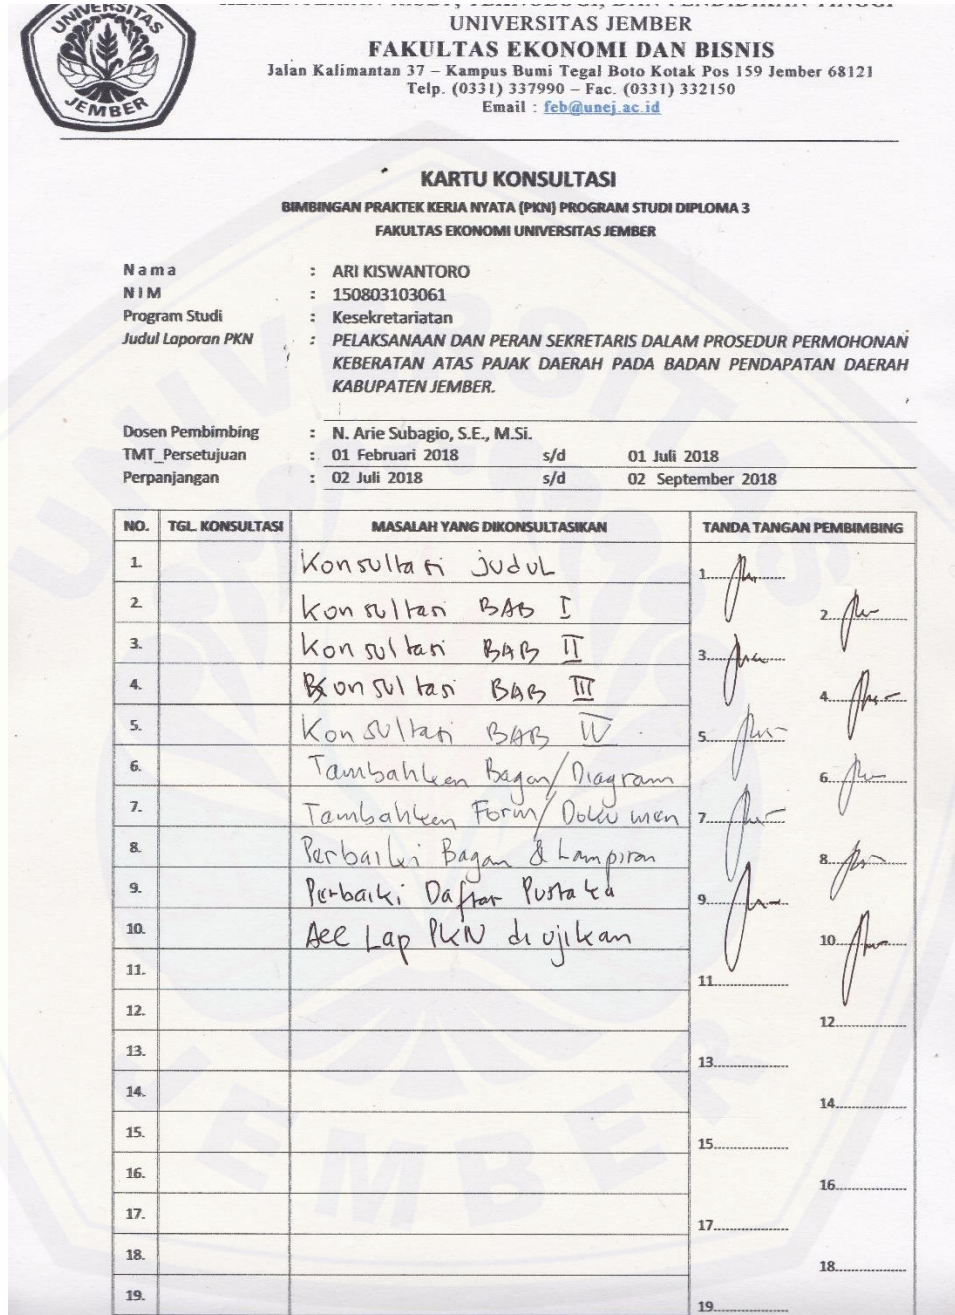 UNIVERSITAS
JEMBER
KEMENTERIAN RISET, TEKNOLOGI, DAN PENDIDIKAN TINGGI
UNIVERSITAS JEMBER
FAKULTAS EKONOMI DAN BISNIS
Jalan Kalimantan 37 – Kampus Bumi Tegal Boto Kotak Pos 159 Jember 68121
Telp. (0331) 337990 – Fac. (0331) 332150
Email : feb@unej.ac.id
KARTU KONSULTASI
BIMBINGAN PRAKTEK KERJA NYATA (PKN) PROGRAM STUDI DIPLOMA 3
FAKULTAS EKONOMI UNIVERSITAS JEMBER
N a m a : ARI KISWANTORO
N I M : 150803103061
Program Studi : Kesekretariatan
Judul Laporan PKN : PELAKSANAAN DAN PERAN SEKRETARIS DALAM PROSEDUR PERMOHONAN
KEBERATAN ATAS PAJAK DAERAH PADA BADAN PENDAPATAN DAERAH
KABUPATEN JEMBER.
Dosen Pembimbing : N. Arie Subagio, S.E., M.Si.
TMT_Persetujuan : 01 Februari 2018 s/d 01 Juli 2018
Perpanjangan : 02 Juli 2018 s/d 02 September 2018
NO. TGL. KONSULTASI MASALAH YANG DIKONSULTASIKAN TANDA TANGAN PEMBIMBING
1. Konsultasi judul 1.
2. Konsultasi BAB I 2.
3. Konsultasi BAB II 3.
4. Konsultasi BAB III 4.
5. Konsultasi BAB IV 5.
6. Tambahkan Bagan/Diagram 6.
7. Tambahkan Form/Dokumen 7.
8. Perbaiki Bagan & Lampiran 8.
9. Perbaiki Daftar Pustaka 9.
10. Acc Lap PKN diujikan 10.
11. 11.
12. 12.
13. 13.
14. 14.
15. 15.
16. 16.
17. 17.
18. 18.
19. 19.